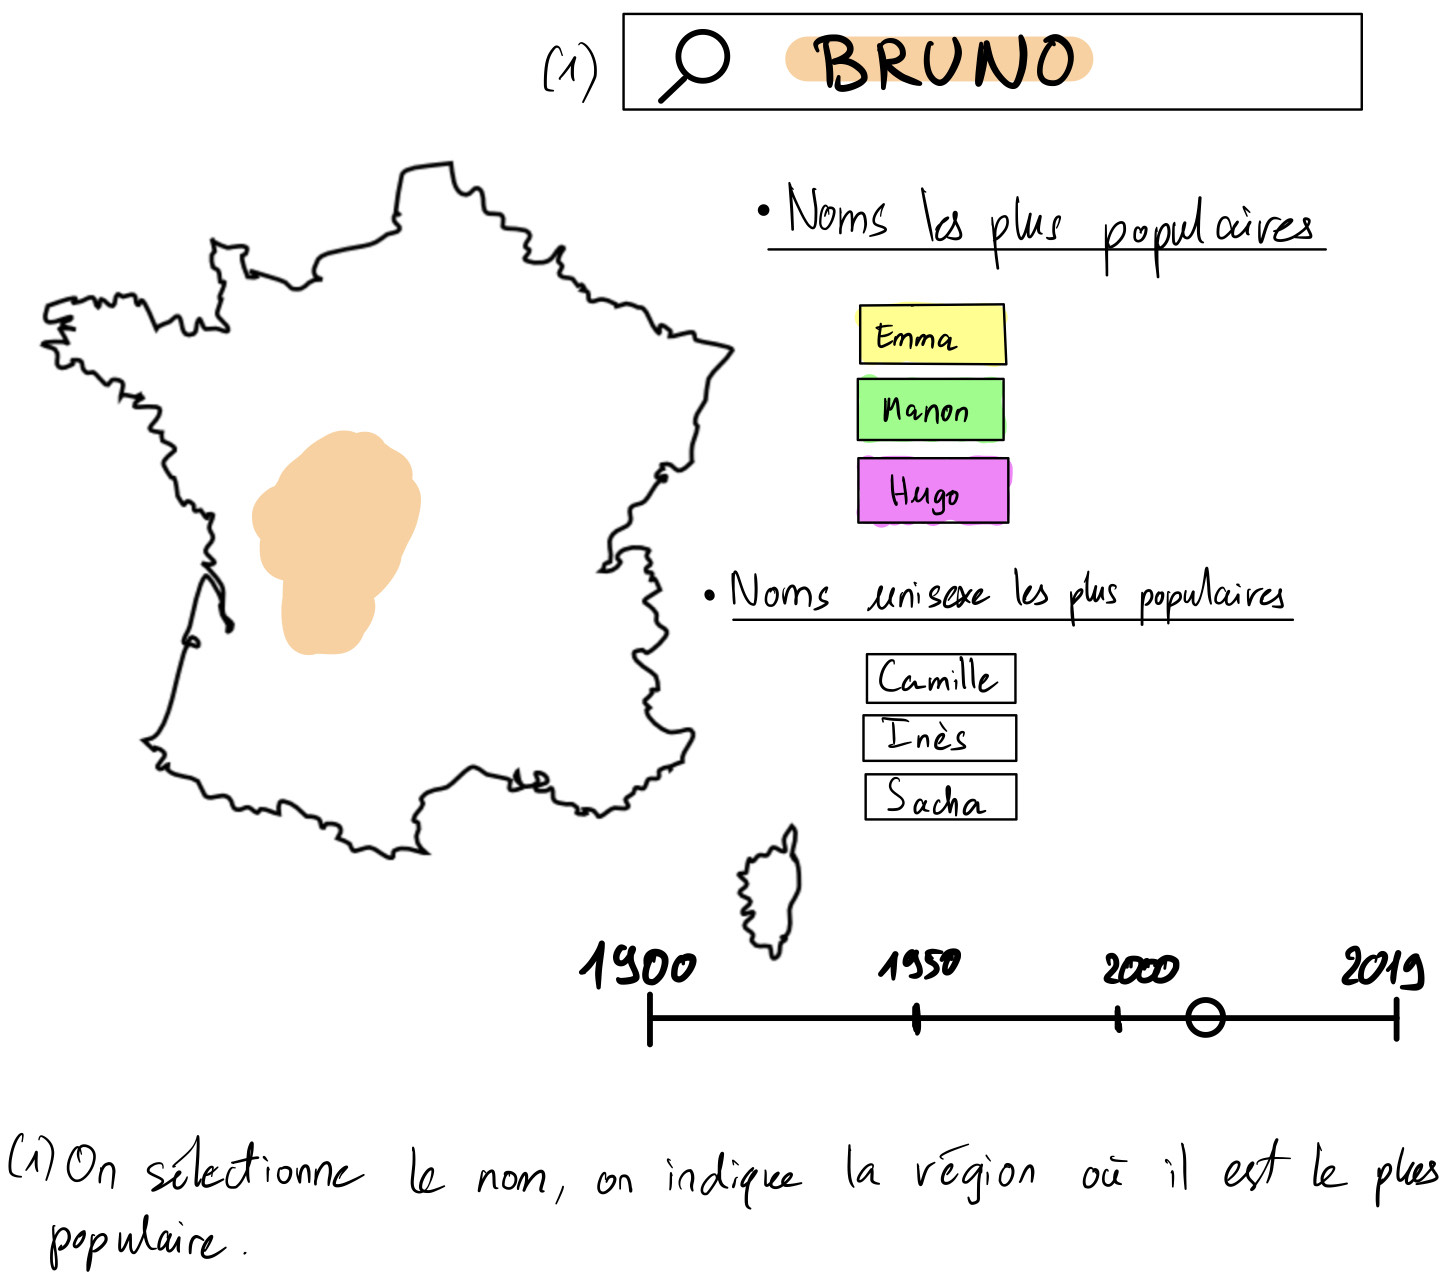 (1) BRUNO
• Noms les plus populaires
Emma
Manon
Hugo
• Noms unisexe les plus populaires
Camille
Inès
Sacha
1900 1950 2000 2019
(1) On sélectionne le nom, on indique la région où il est le plus
populaire.